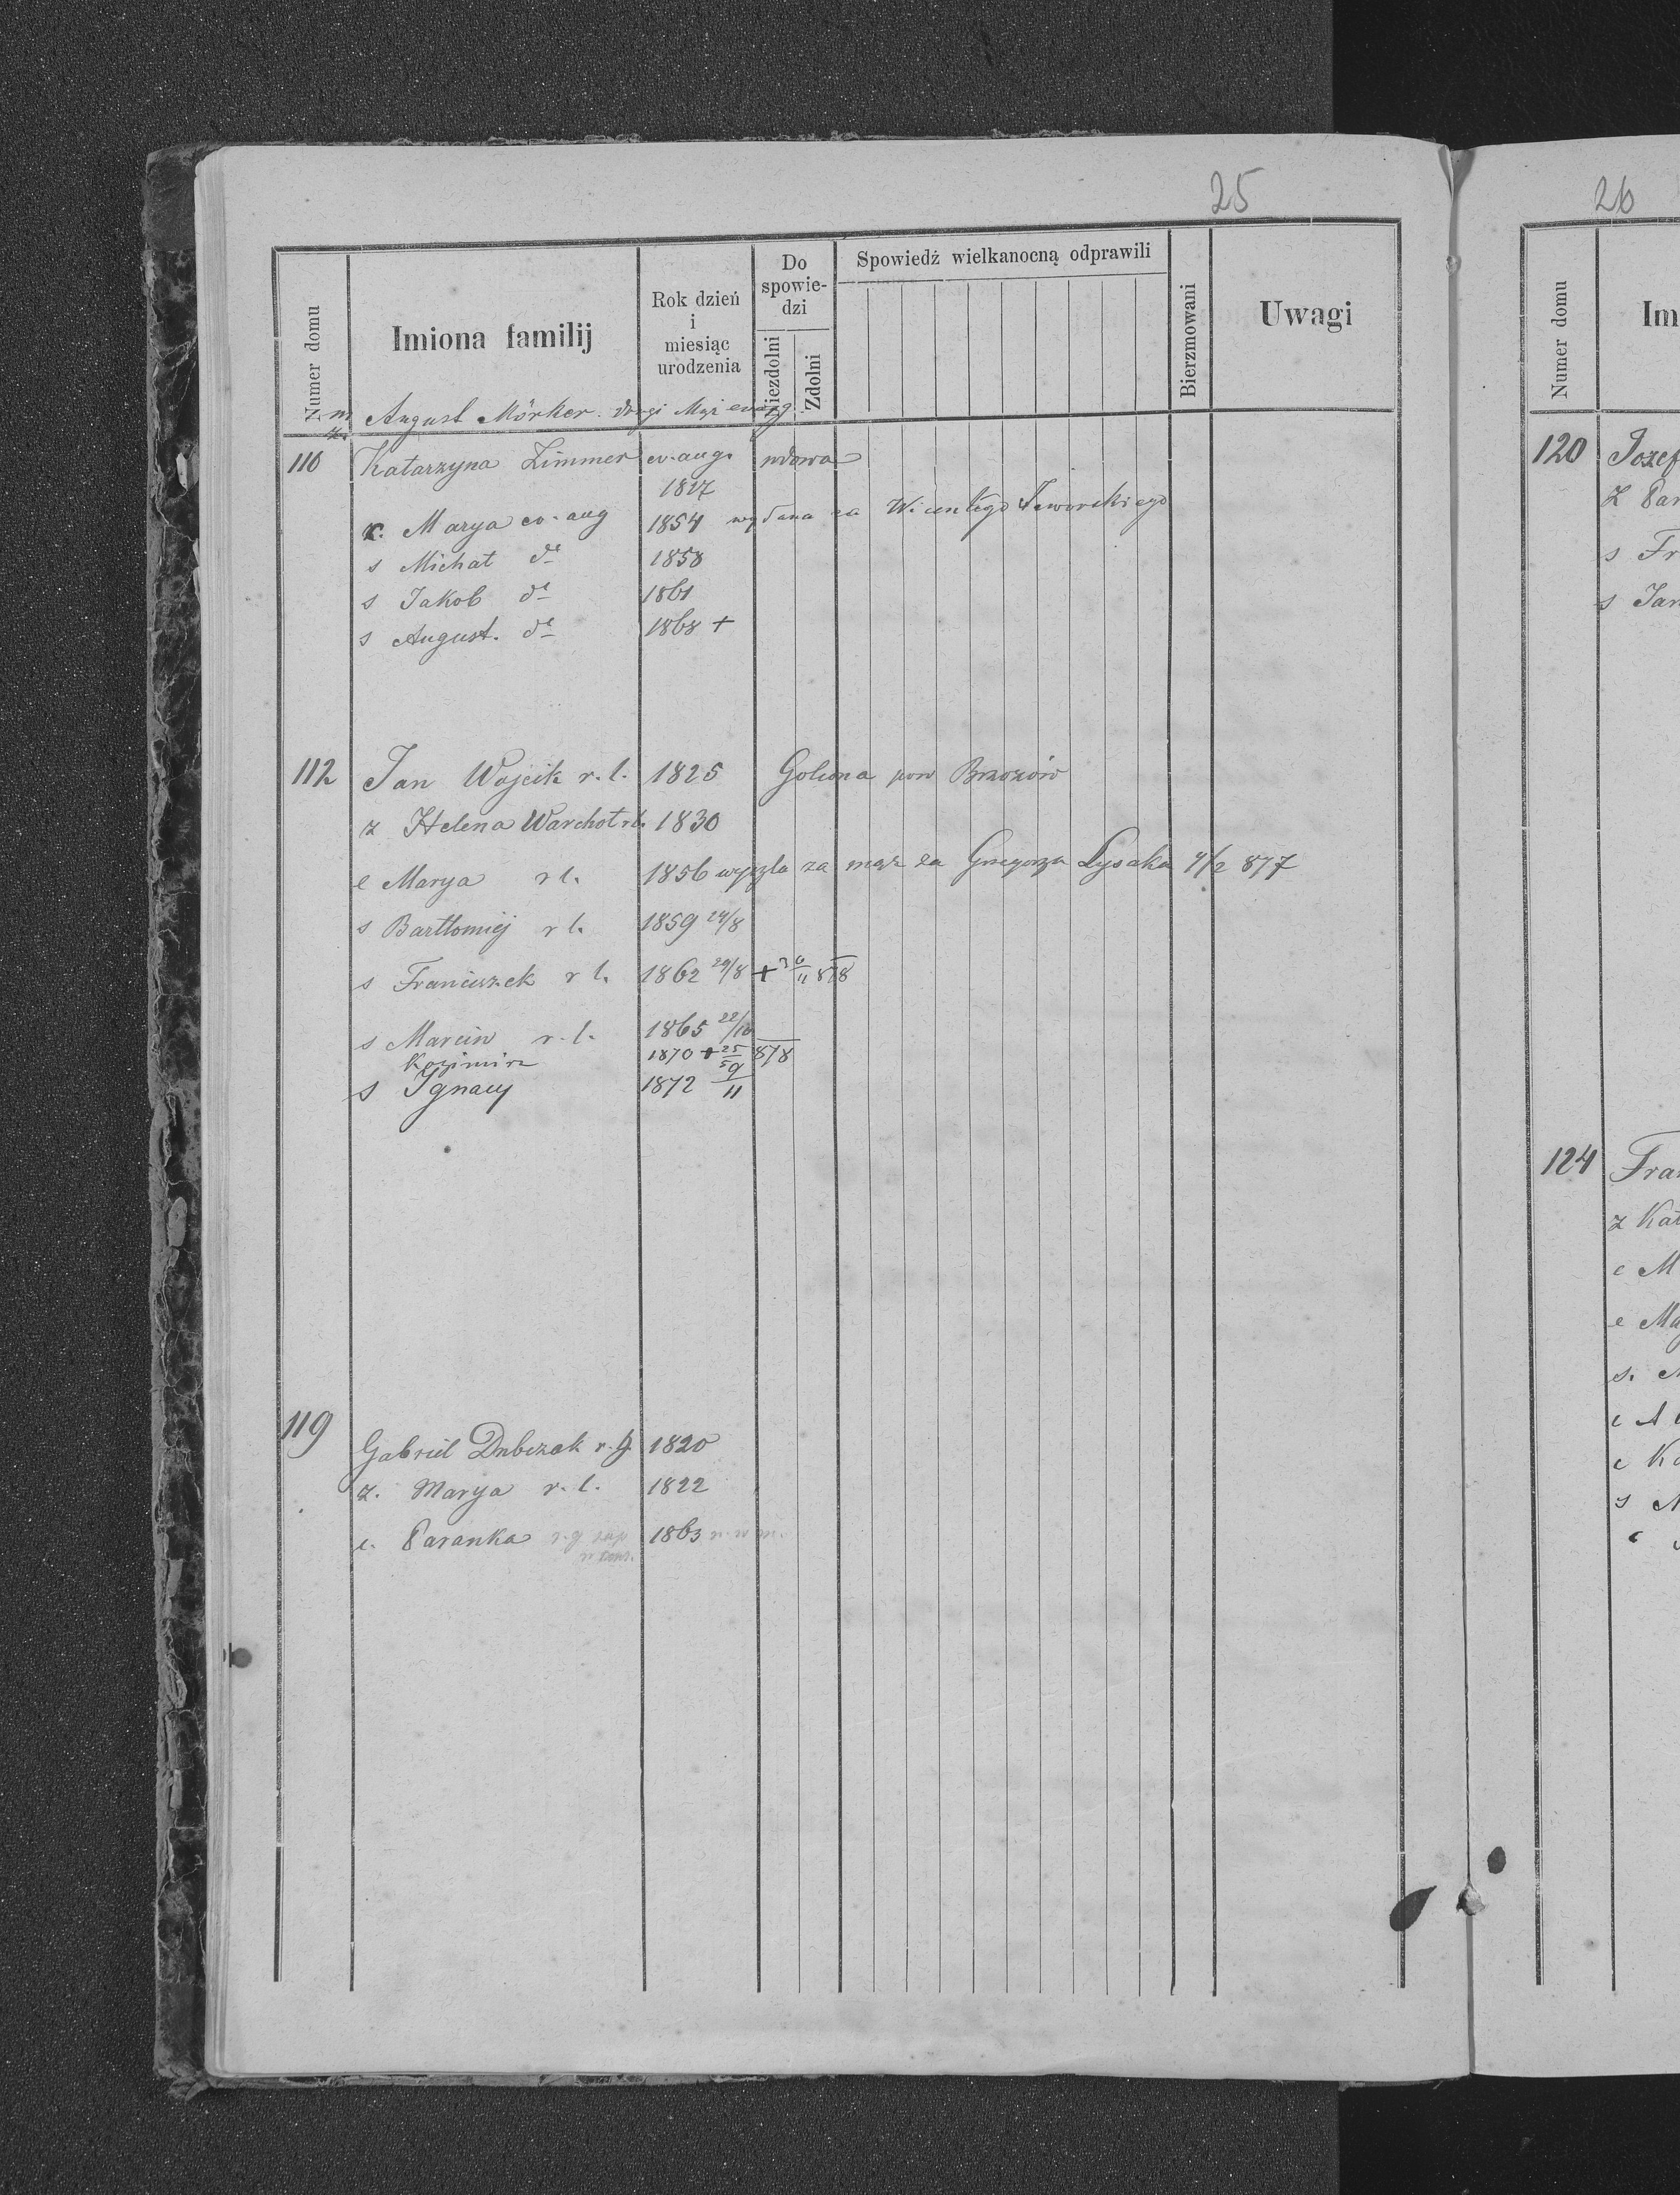 25
Numer domu
Imiona familij
Rok dzień
i
miesiąc
urodzenia
Do
spowie-
dzi
Niezdolni
Zdolni
Spowiedź wielkanocną odprawili
Bierzmowani
Uwagi
m August Mörker. drugi Mąż ewang
ż.
110 Katarzyna Zimmer ev. aug. wdowa
1827
c. Marya ev. aug 1854 wydana za Wicentego Jaworskiego
s Michał dº 1858
s Jakob dº 1861
s August. dº 1868 +
112 Jan Wojcik r. l. 1825 Golcona pow Brzozów
z Helena Warchoł r l. 1830
c Marya r l. 1856 wyszla za mąż za Grzegorza Lysaka 4/2 877
s Bartłomiej r l. 1859 24/8
s Franciszek r l. 1862 29/8 + 30/11 878
s Marcin r. l. 1865 22/10
Kazimirz 1870 + 25/5 878
s Ignacy 1872 9/11
119 Gabriel Dubczak r. g 1820
z. Marya r. l. 1822
c. Paranka r. g zap 1863 n. w m.
26
Numer domu
Im
120 Jozef
Z Par
s Fr
s Jan
124 Fra
z Kat
c M
c Ma
s.
c
c Ka
s
c